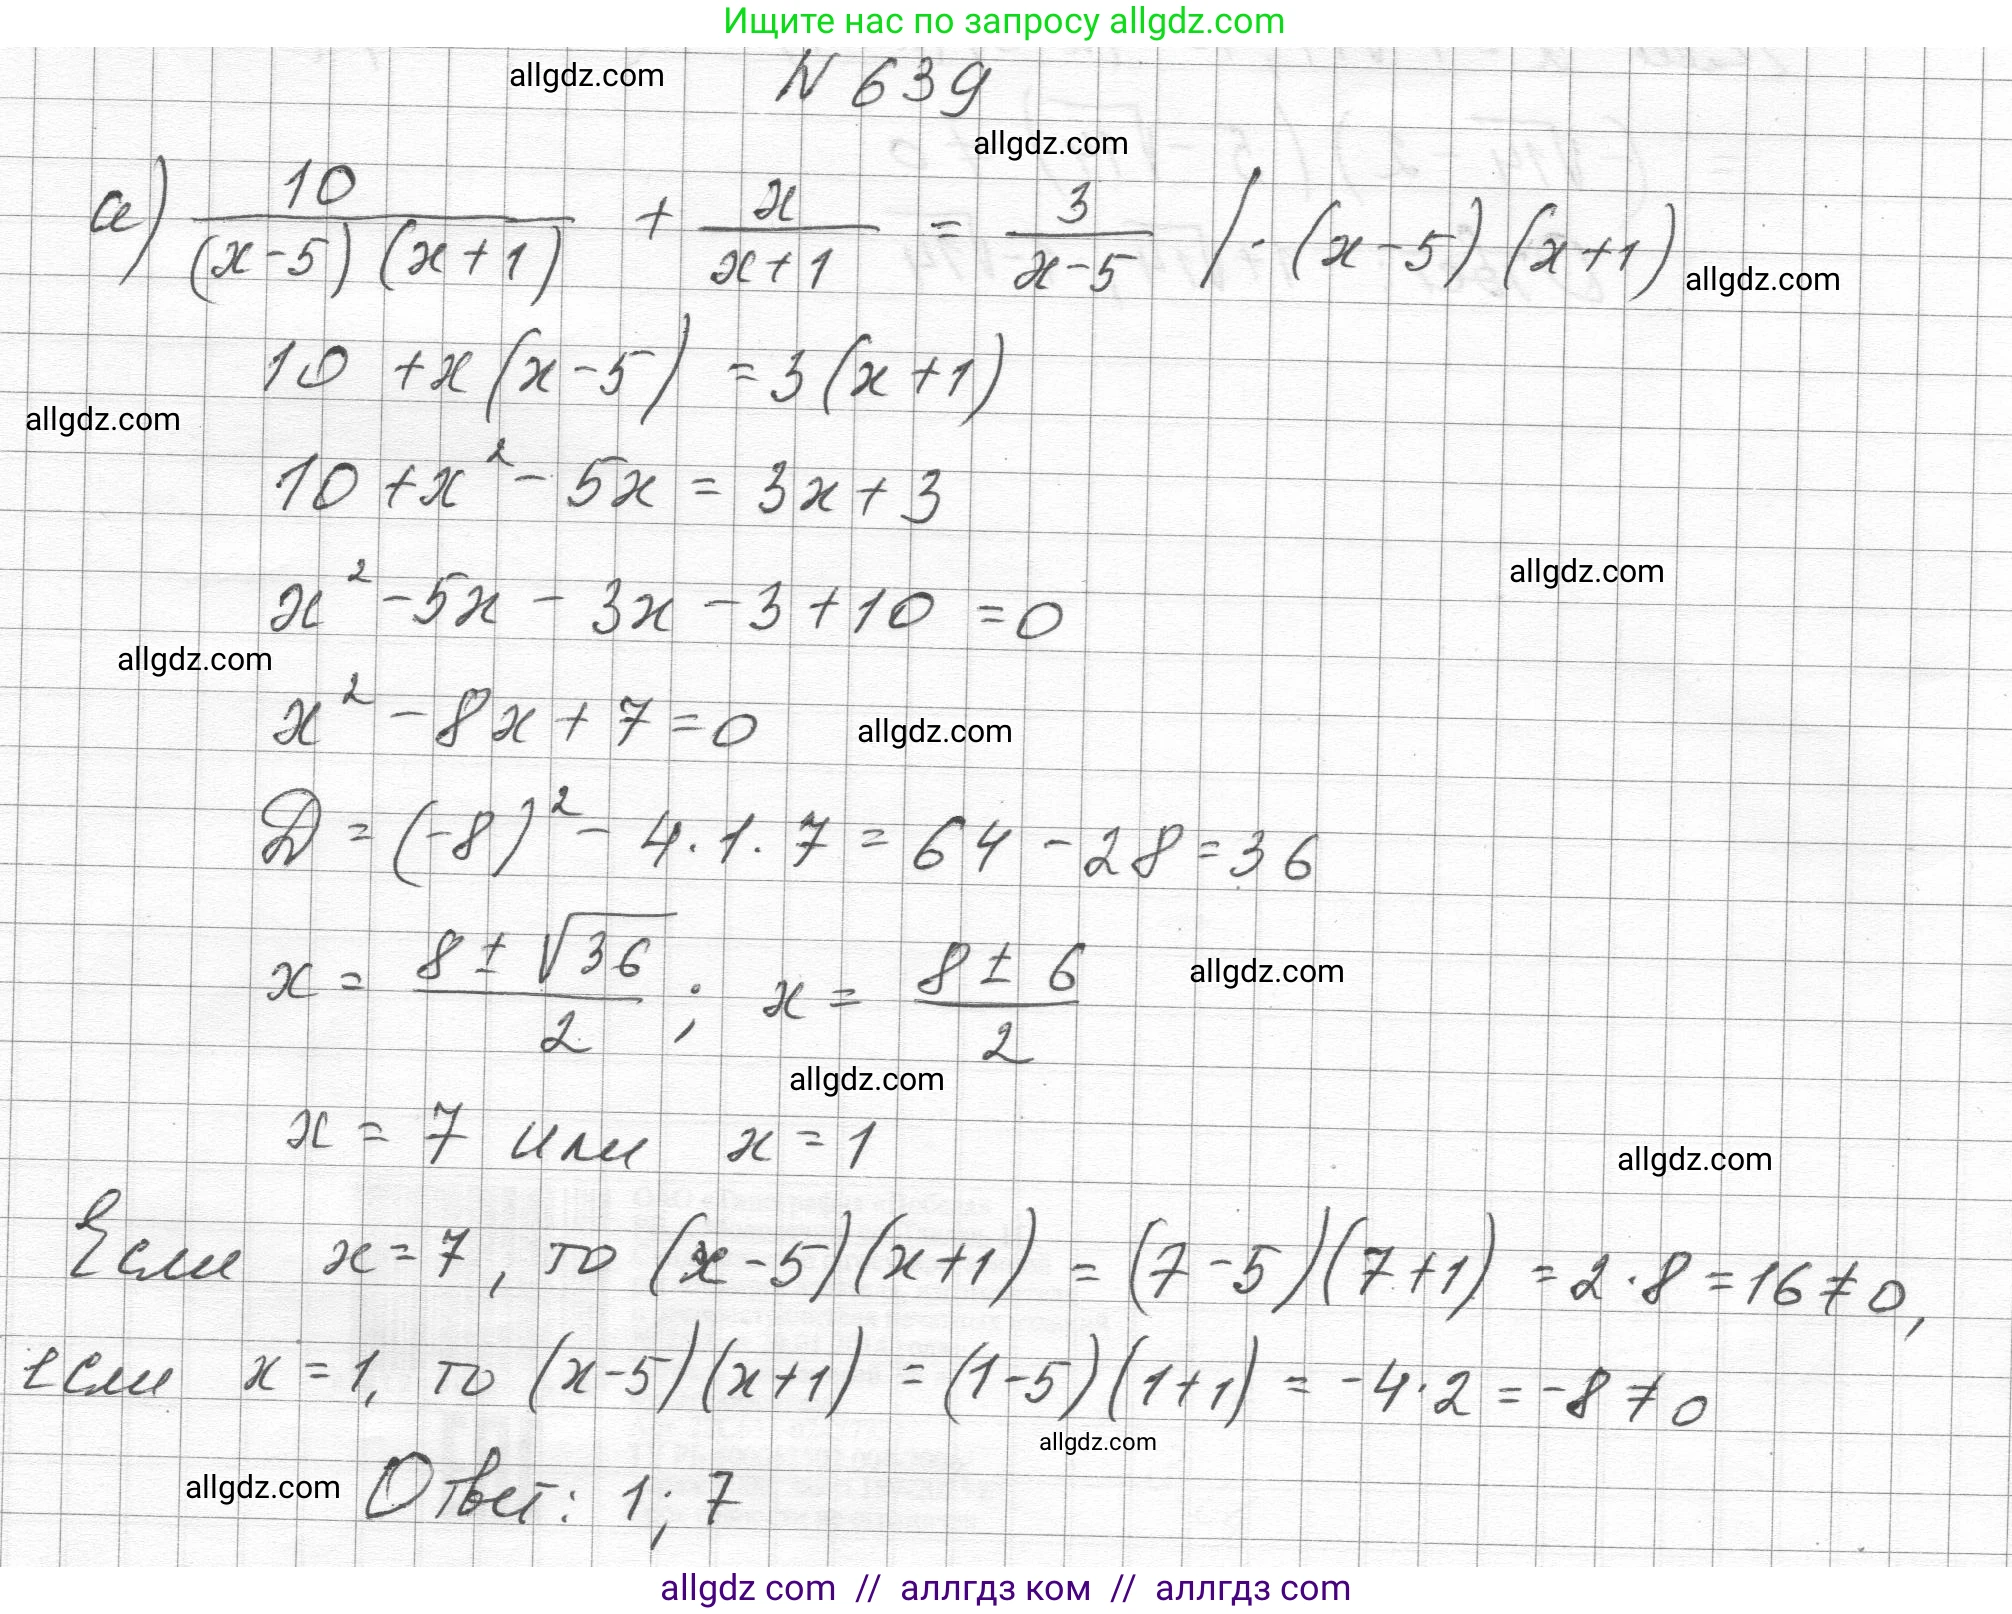 Ищите нас по запросу allgdz.com
allgdz.com
N 639
allgdz.com
а) 10/((x-5)(x+1)) + x/(x+1) = 3/(x-5) / · (x-5)(x+1)
allgdz.com
10 + x(x-5) = 3(x+1)
allgdz.com
10 + x² - 5x = 3x + 3
allgdz.com
x² - 5x - 3x - 3 + 10 = 0
allgdz.com
x² - 8x + 7 = 0
allgdz.com
D = (-8)² - 4·1·7 = 64 - 28 = 36
x = (8 ± √36)/2 ; x = (8 ± 6)/2
allgdz.com
allgdz.com
x = 7 или x = 1
allgdz.com
Если x = 7, то (x-5)(x+1) = (7-5)(7+1) = 2·8 = 16 ≠ 0,
если x = 1, то (x-5)(x+1) = (1-5)(1+1) = -4·2 = -8 ≠ 0
allgdz.com
allgdz.com
Ответ: 1; 7
allgdz com // аллгдз ком // аллгдз com